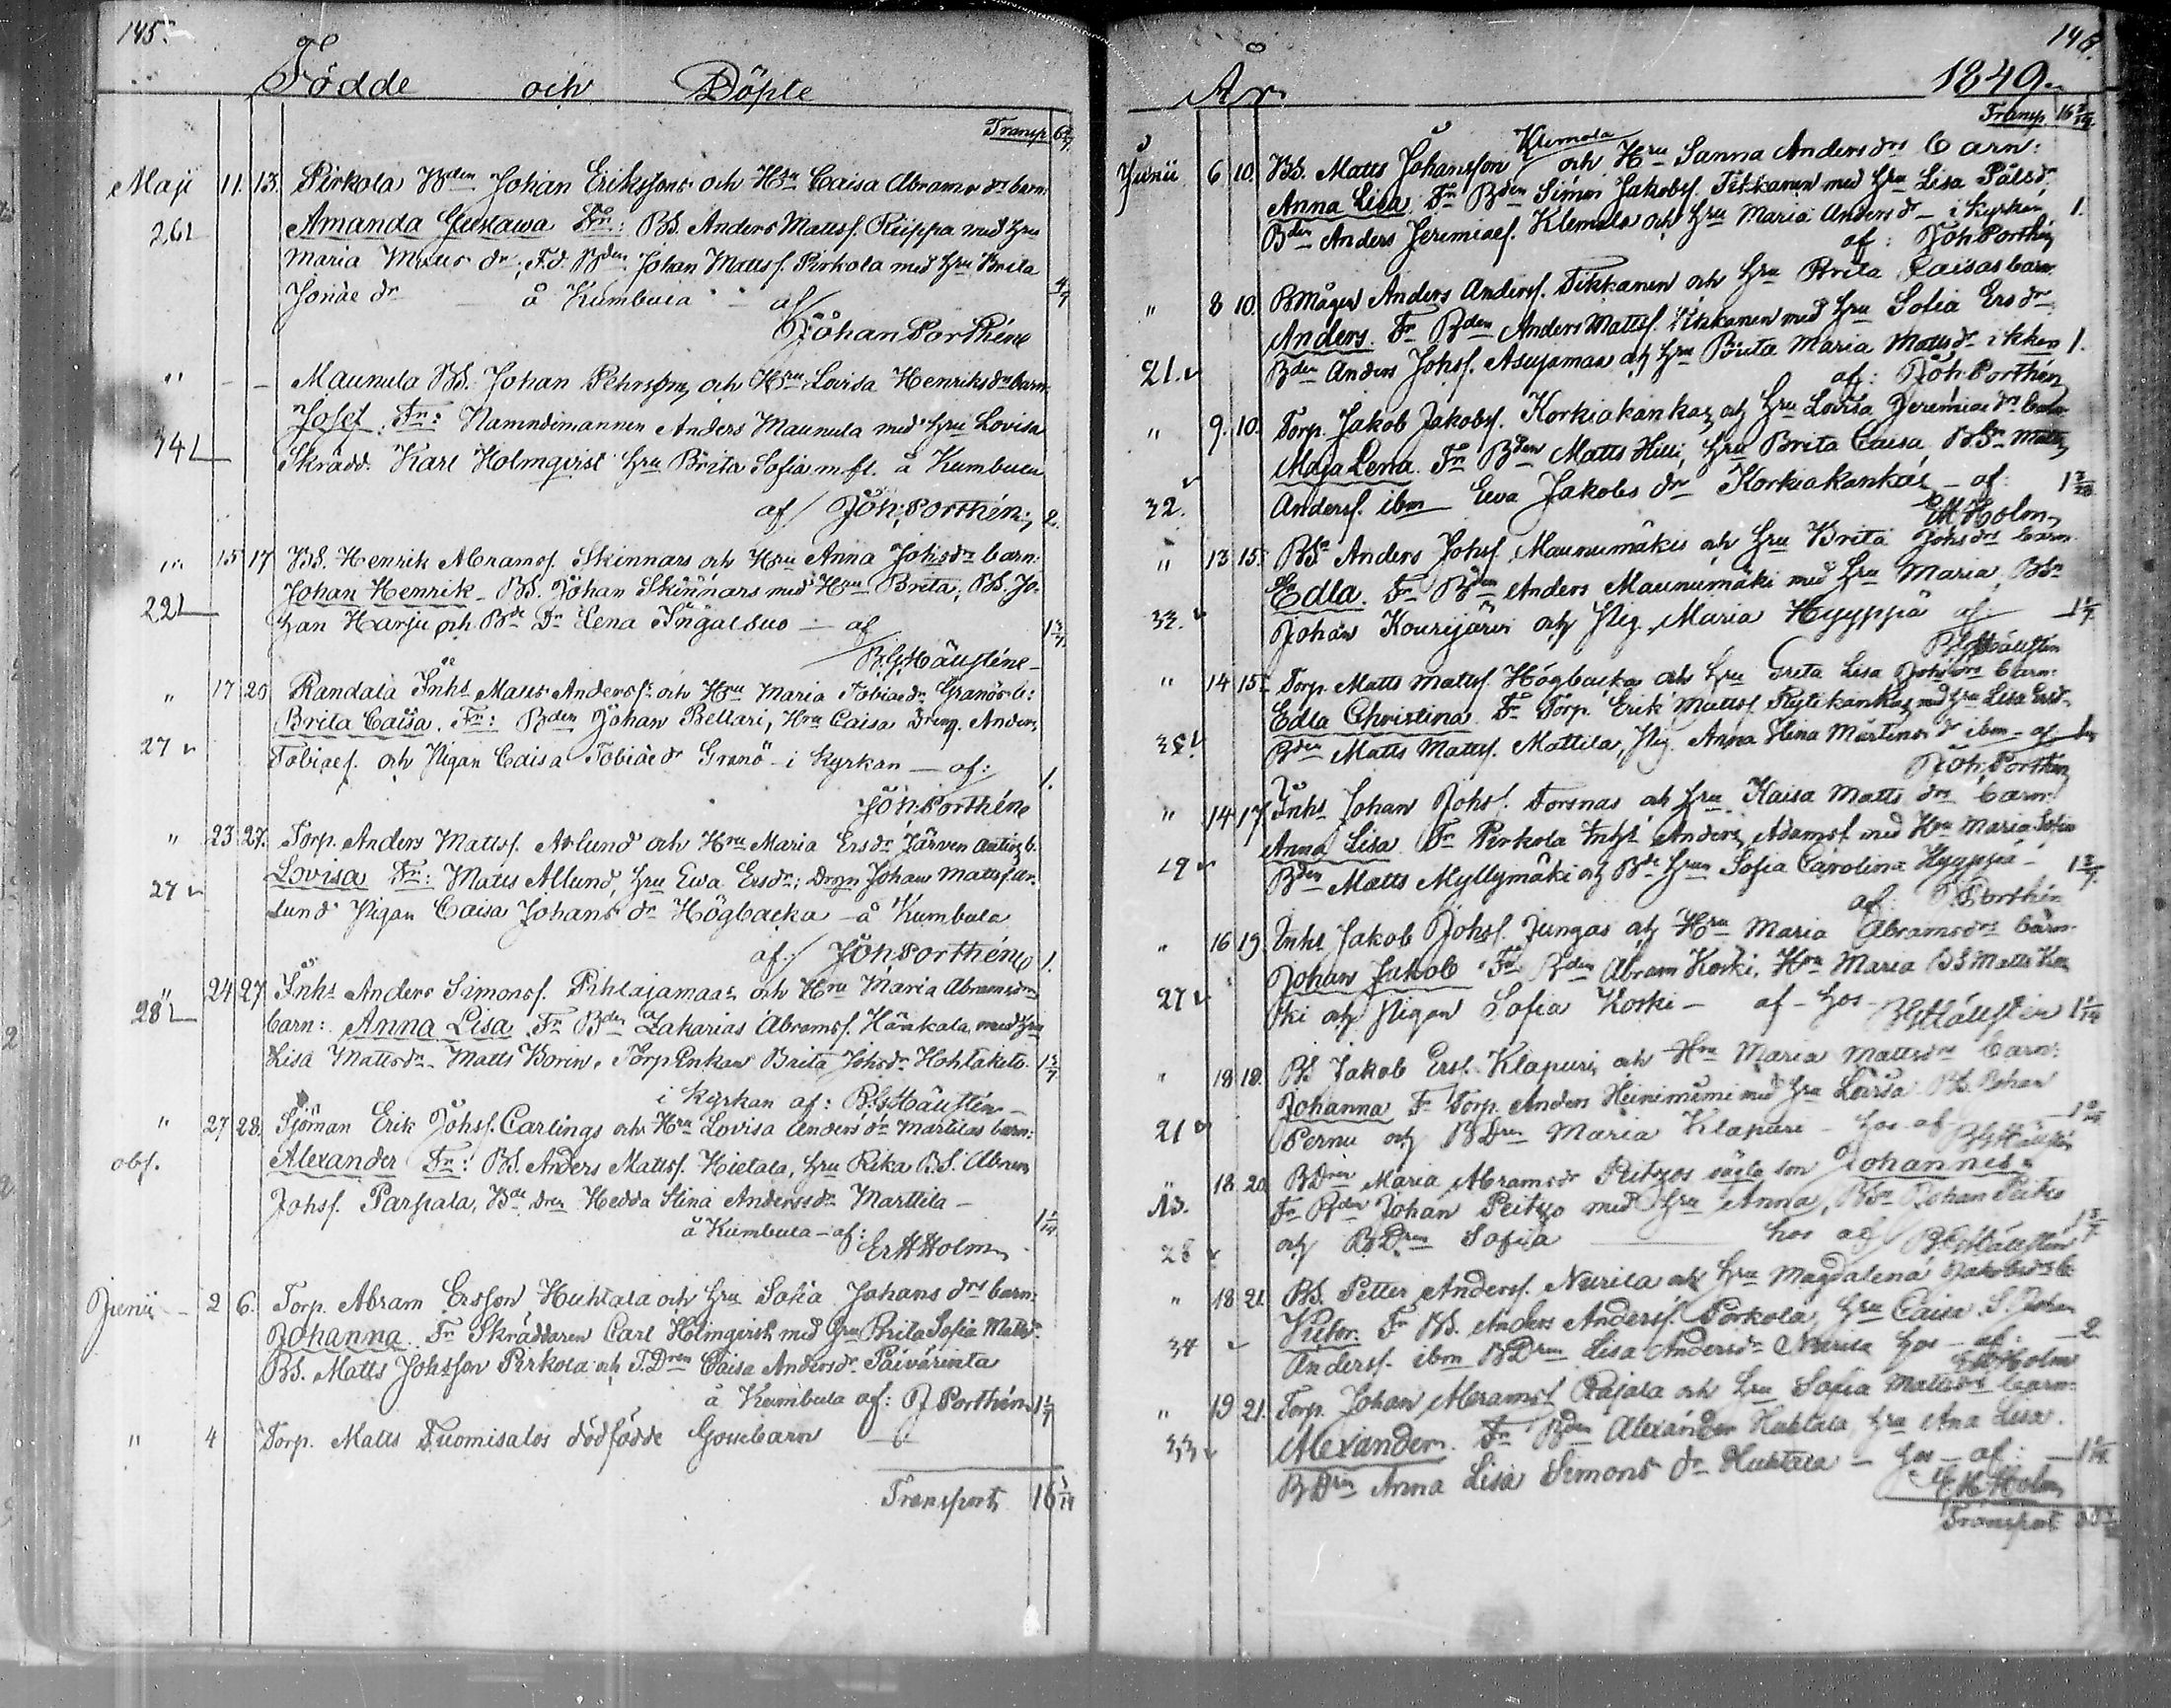 145.
Födde och Döpte
Transp.
Maji 11. 13. Pirkola Bden Johan Erikssons och Hru Caisa Abrams dr barn
26 Amanda Gustawa Fr: BS. Anders Mattsf. Riippa med hru
Maria Matts dr, F.d. Bden Johan Mattsf. Pirkola med hru Brita
Jonae dr å Kumbula af 4/7
Johan Porthén
" - - Maunula BS. Johan Pehrsson och Hru Lovisa Henriksdrs barn
Josef. Fr: Nämndemannen Anders Maunula med hru Lovisa
34 Skrädd. Karl Holmqvist hru Brita Sofia m.fl. å Kumbula
af Joh. Porthén 2.
" 15 17 BS. Henrik Abramsf. Skinnars och Hru Anna Johsdrs barn:
Johan Henrik - BS. Johan Skinnars med Hru Brita, BS. Jo-
22 han Harju och Bde Dr Lena Ingalsuo - af
B.G. Häusténe
" 17 20 Randala Inhs Matts Anderss och Hru Maria Tobiaedr Granös b:
Brita Caisa. Fr: Bden Johan Bellari, Hru Caisa Dreng. Anders
27 Tobiaef. och Pigan Caisa Tobiaedr Granö - i Kyrkan - af: 1.
Joh. Porthén
" 23 27. Torp. Anders Mattsf. Aslund och Hru Maria Ersdr Järven
27 Lovisa Fr: Matts Allund, hru Ewa Ersdr; Drgn Johan Mattsf as-
lund Pigan Caisa Johans dr Högbacka - å Kumbula
af: Joh. Porthén 1.
" 24 27 Inhs Anders Simonsf. Pihlajamaas och Hru Maria Abramsdrs
28 barn: Anna Lisa. Fr Bden Zakarias Abramsf. Hänkala med hru
Lisa Mattsdr. Matts Korin, Torp Enkan Brita Johsdr
i Kyrkan af: B.G. Häustén
" 27 28. Sjöman Erik Johsf. Carlings och Hru Lovisa Anders dr Marttilas barn:
obs. Alexander Fr: BS. Anders Mattsf. Hietala, hru Rika B.S. Abram
Johsf. Parpala, Bde Dren Hedda Stina Andersdr Marttila -
å Kumbula - af: 1 1/14
Er H Holm
Junii - 2 6. Torp. Abram Ersson Huhtala och hru Sofia Johans drs barn:
Johanna. Fr Skräddaren Carl Holmqvist med hru Brita Sofia Mattsdr
BS. Matts Johsson Pirkola och T.Dren Caisa Andersdr Päivärinta
å Kumbula af: J Porthén 1 1/7
" 4 Torp. Matts Tuomisalos dödfödde Gossebarn
Transport 16 3/14
146.
År 1849.
Transp. 16 3/14
Klemola
Junii 6 10. BS. Matts Johansson och Hru Sanna Andersdrs barn:
Anna Lisa. Fr Bden Simon Jakobsf. Tikkanen med hru Lisa Pålsdr
Bden Anders Jeremiaef. Klemola och hru Maria Andersdr - i Kyrkan 1.
af: Joh Porthén
" 8 10. BMågen Anders Andersf. Tikkanen och hru Brita Caisas barn
Anders. Fr Bden Anders Mattsf. Tikkanen med hru Sofia Ersdr
21. Bden Anders Johsf. Asujamaa och hru Brita Maria Mattsdr i kkan 1.
af: Joh. Porthén
" 9. 10. Torp. Jakob Jakobsf. Korkiakankas och hru Lovisa Jeremiae drs barn
Maja Lena. Fr Bden Matts Hilli, hru Brita Caisa, BSn Matts
32. Andersf. ibm Ewa Jakobs dr Korkiakankas - af:
E H Holm
" 13 15. BSn Anders Johsf. Maunumäkis och hru Brita Johsdrs barn
Edla. Fr Bden Anders Maunumäki med hru Maria, BSn
33. Johan Kourijärvi och Pig. Maria Hyyppä af:
B.G. Häustén
" 14 15. Torp. Matts Mattsf. Högbackas och hru Greta Lisa Johsdrs barn:
Edla Christina. Fr Torp. Erik Mattsf. med hru Lisa Ersdr
35 Bden Matts Mattsf. Mattila, Pig. Anna Stina Mårtensdr ibm - af 1
Joh. Porthén
" 14 17. Inhs Johan Johsf. Forsnas och hru Kaisa Matts drs barn
Anna Lisa. Fr Pirkola Inhs Anders Adamsf. med Hru Maria Sofia
29 Bden Matts Myllymäki och Bde hrun Sofia Carolina Hyyppä -
af: J. Porthén
" 16 19. Inhs Jakob Johsf. Jungas och Hru Maria Abramsdrs barn
Johan Jakob Fr Bden Abram Koski, Hru Maria BS Matts Ko-
27 ski och Pigan Sofia Koski - af - hos B G Häustén 1 1/14
" 18 18. BS Jakob Ersf. Klapuris och Hru Maria Mattsdrs barn:
Johanna Fr Torp. Anders Heinimemi med hru Lovisa BS. Johan
21 Pernu och BDren Maria Klapuri - hos af
B G Häustén
" 18. 20. BDren Maria Abramsdr Peitsos oägta son Johannes.
Fr Bden Johan Peitso med hru Anna, BSn Johan Peitso
28 och BDren Sofia hos af B G Häustén
" 18 21. BS. Petter Andersf. Nurila och hru Magdalena Jakobsdrs b:
Victor. Fr BS. Anders Andersf. Porkola, hru Caisa S. Johan
34 Andersf. ibm BDren Lisa Andersdr Nurila hos - af: 2.
E H Holm
" 19 21. Torp. Johan Abramsf. Pajala och hru Sofia Mattsdrs barn:
33 Alexander. Fr Bden Alexander Huhtala, hru Ana Lisa.
BDren Anna Lisa Simons dr Huhtala - hos - af: 1 1/14
E H Holm
Transport